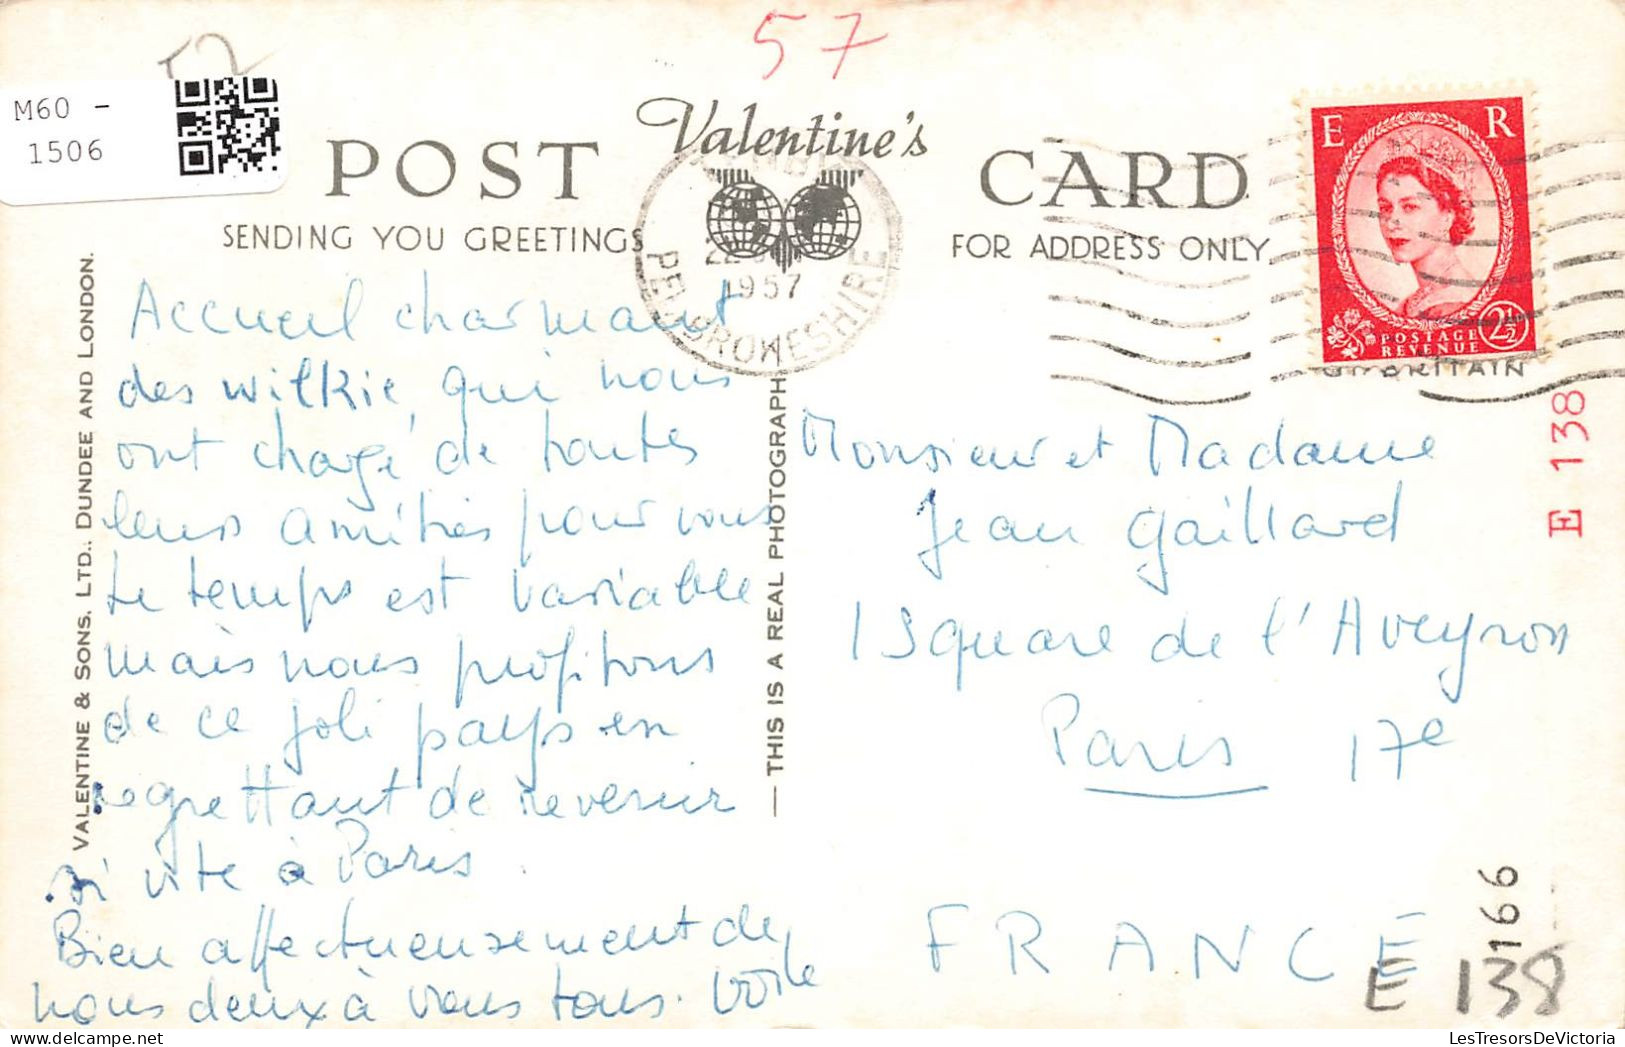 57
52
M60 -
1506
Valentine's
POST CARD
SENDING YOU GREETINGS
FOR ADDRESS ONLY
E R
POSTAGE
REVENUE
2½
22
1957
PEMBROKESHIRE
BRITAIN
VALENTINE & SONS. LTD., DUNDEE AND LONDON.
Accueil charmant
des Wilkie, qui nous
ont chargé de toutes
leurs amitiés pour vous
Le temps est variable
mais nous profitons
de ce joli pays en
regrettant de revenir
si vite à Paris.
Bien affectueusement de
nous deux à vous tous.
— THIS IS A REAL PHOTOGRAPH
Monsieur et Madame
Jean Gaillard
1 Square de l'Aveyron
Paris 17e
FRANCE
E 138
166
E 138
LesTresorsDeVictoria